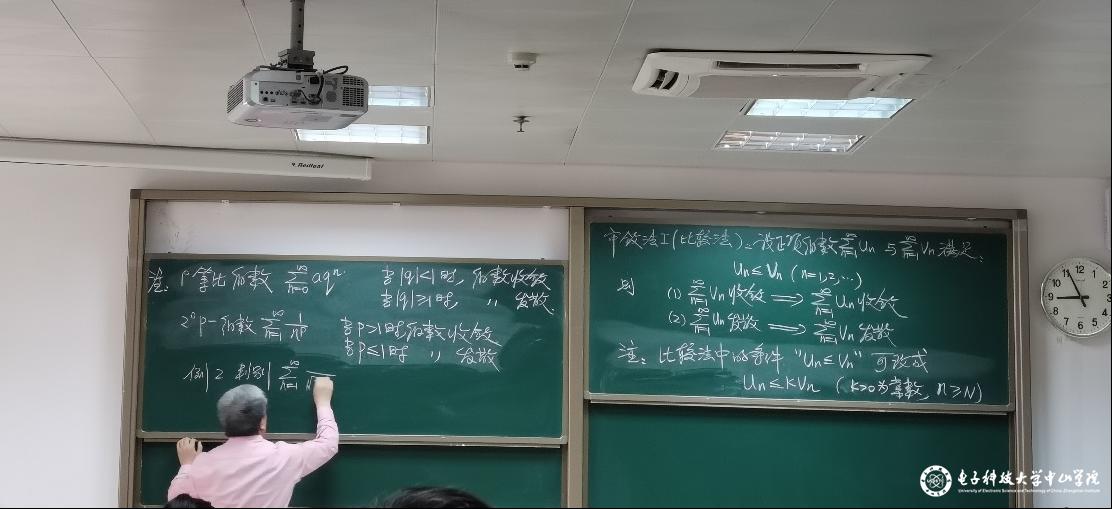 注: 1° 等比级数 ∑_{n=0}^{∞} aq^n 当|q|<1时, 级数收敛
当|q|≥1时, 〃 发散
2° p-级数 ∑_{n=1}^{∞} 1/n^p 当p>1时级数收敛
当p≤1时 〃 发散
例2 判别 ∑_{n=1}^{∞}
审敛法I(比较法): 设正项级数 ∑_{n=1}^{∞} Un 与 ∑_{n=1}^{∞} Vn 满足:
Un≤Vn (n=1,2,…)
则 (1) ∑_{n=1}^{∞} Vn 收敛 ⟹ ∑_{n=1}^{∞} Un 收敛
(2) ∑_{n=1}^{∞} Un 发散 ⟹ ∑_{n=1}^{∞} Vn 发散
注: 比较法中的条件 "Un≤Vn" 可改成
Un≤kVn (k>0为常数, n≥N)
Redleaf
12 1 2 3 4 5 6 7 8 9 10 11
电子科技大学中山学院
University of Electronic Science and Technology of China, Zhongshan Institute